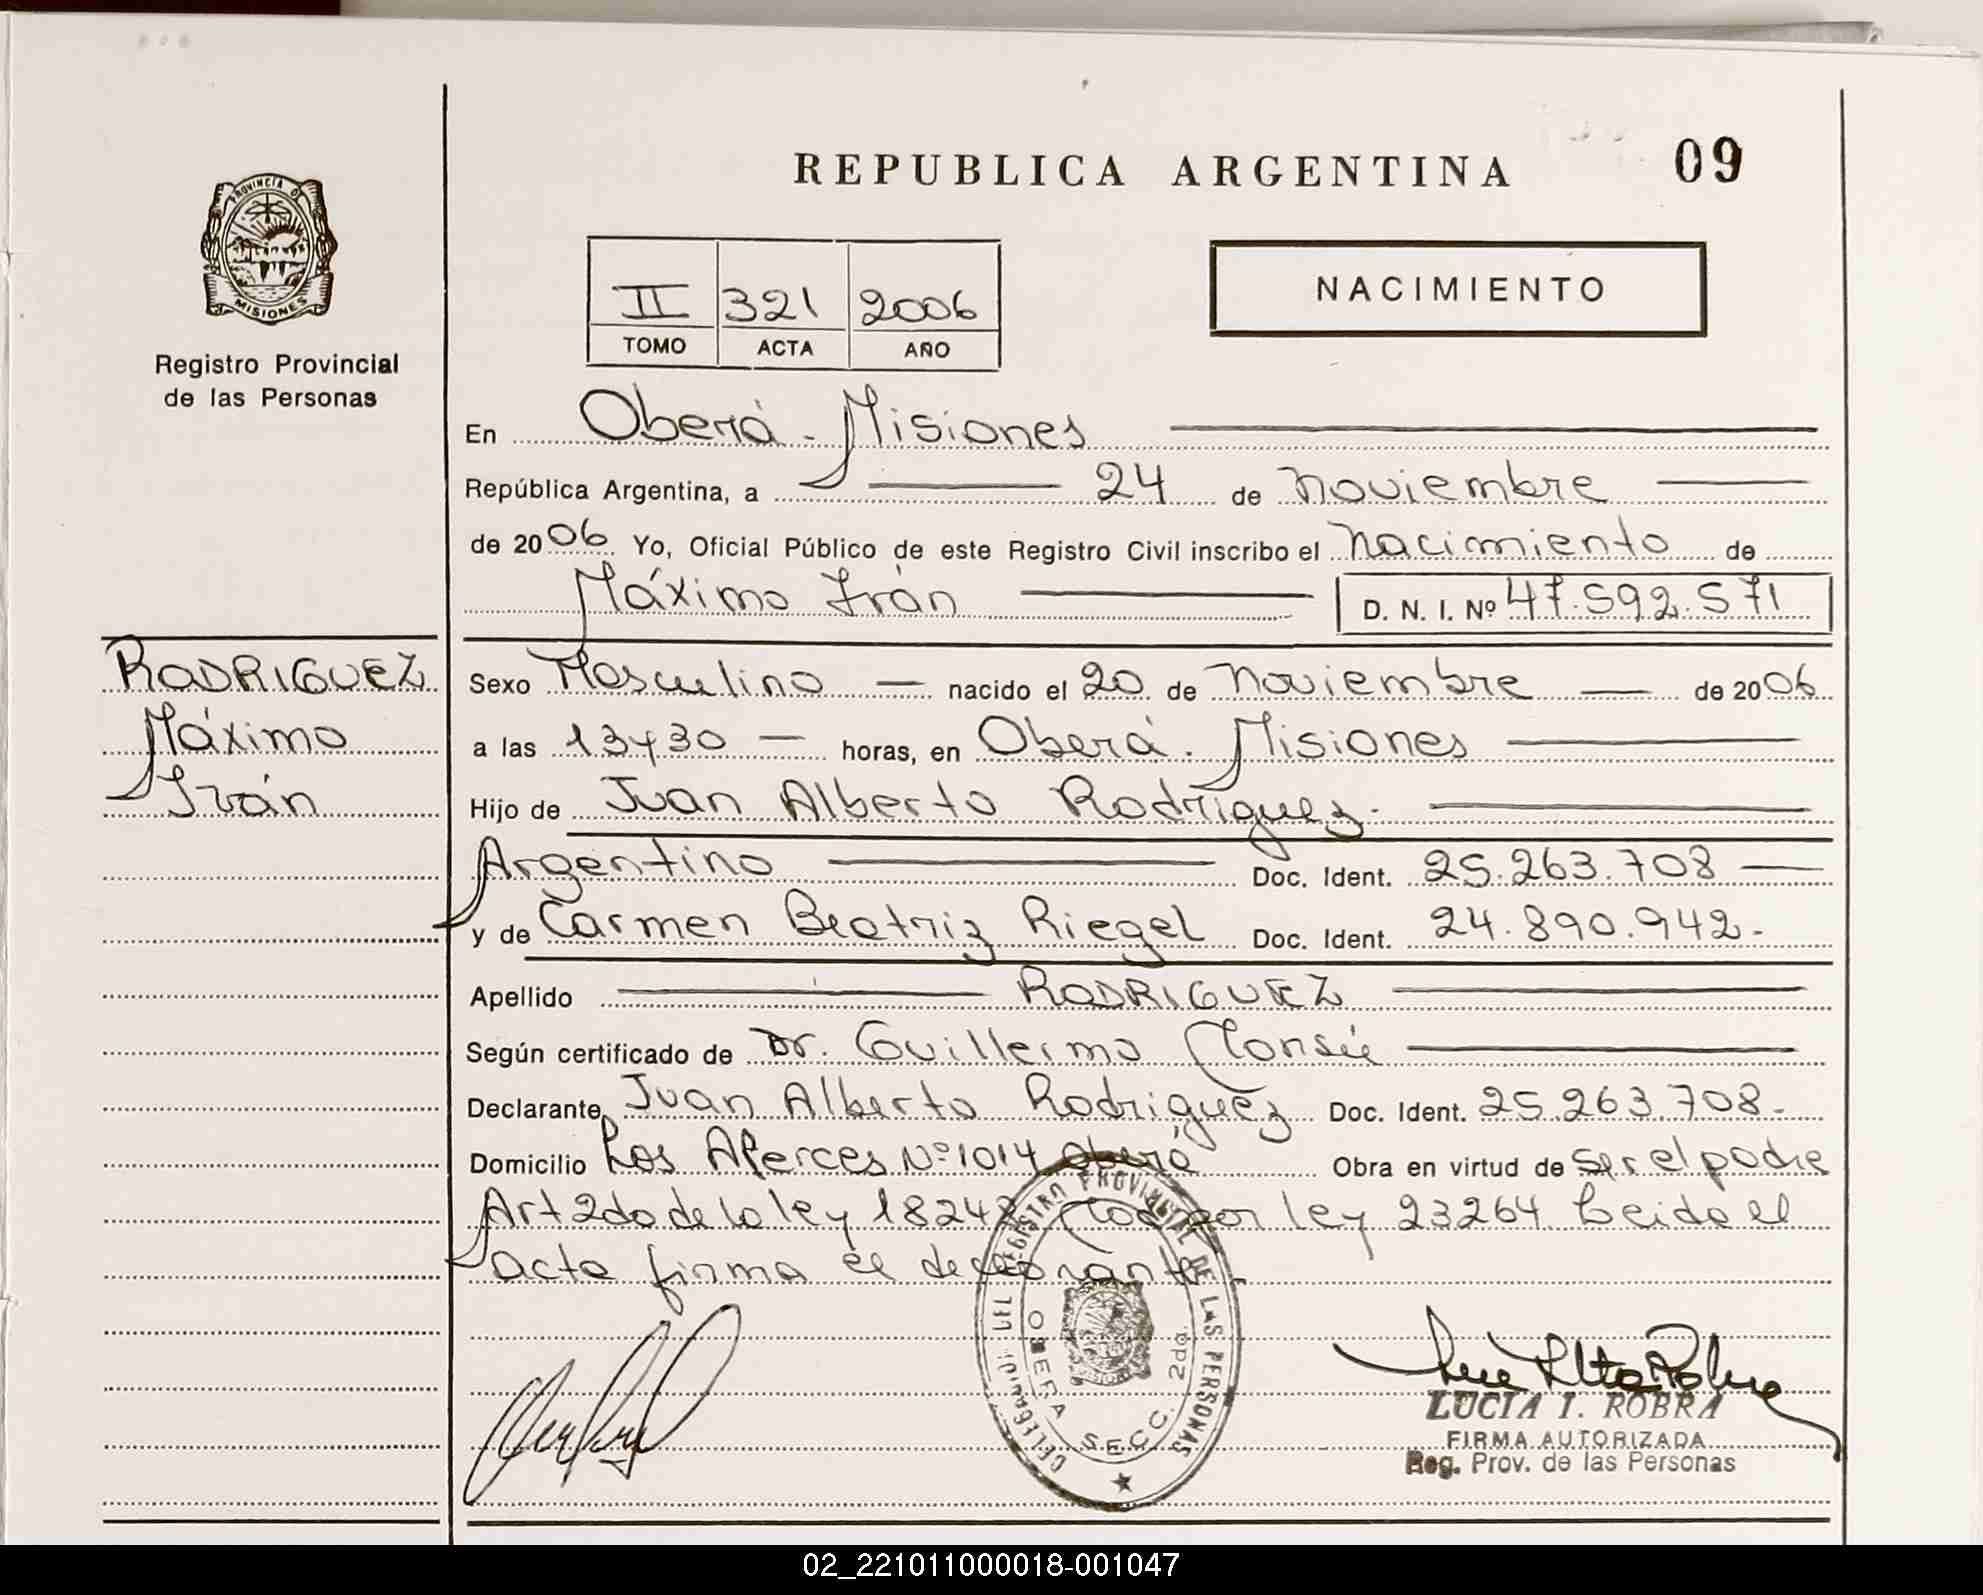 PROVINCIA DE
MISIONES
Registro Provincial
de las Personas
REPUBLICA ARGENTINA
09
II 321 2006
TOMO ACTA AÑO
NACIMIENTO
En Oberá - Misiones
República Argentina, a 24 de Noviembre
de 2006 Yo, Oficial Público de este Registro Civil inscribo el Nacimiento de
Máximo Iván D. N. I. Nº 47.592.571
RODRIGUEZ
Máximo
Iván
Sexo Masculino nacido el 20 de Noviembre de 2006
a las 13y30 horas, en Oberá. Misiones
Hijo de Juan Alberto Rodríguez.
Argentino Doc. Ident. 25.263.708
y de Carmen Beatriz Riegel Doc. Ident. 24.890.942.
Apellido RODRIGUEZ
Según certificado de Dr. Guillermo
Declarante Juan Alberto Rodríguez Doc. Ident. 25.263.708.
Domicilio Los Alerces Nº 1014 Oberá Obra en virtud de ser el padre
Art 2do de la ley 18248 Mod por ley 23264 Leida el
acta firma el declarante
DELEGACION DEL REGISTRO PROVINCIAL DE LAS PERSONAS
OBERA SECC. 2da.
LUCIA I. ROBRA
FIRMA AUTORIZADA
Reg. Prov. de las Personas
02_221011000018-001047